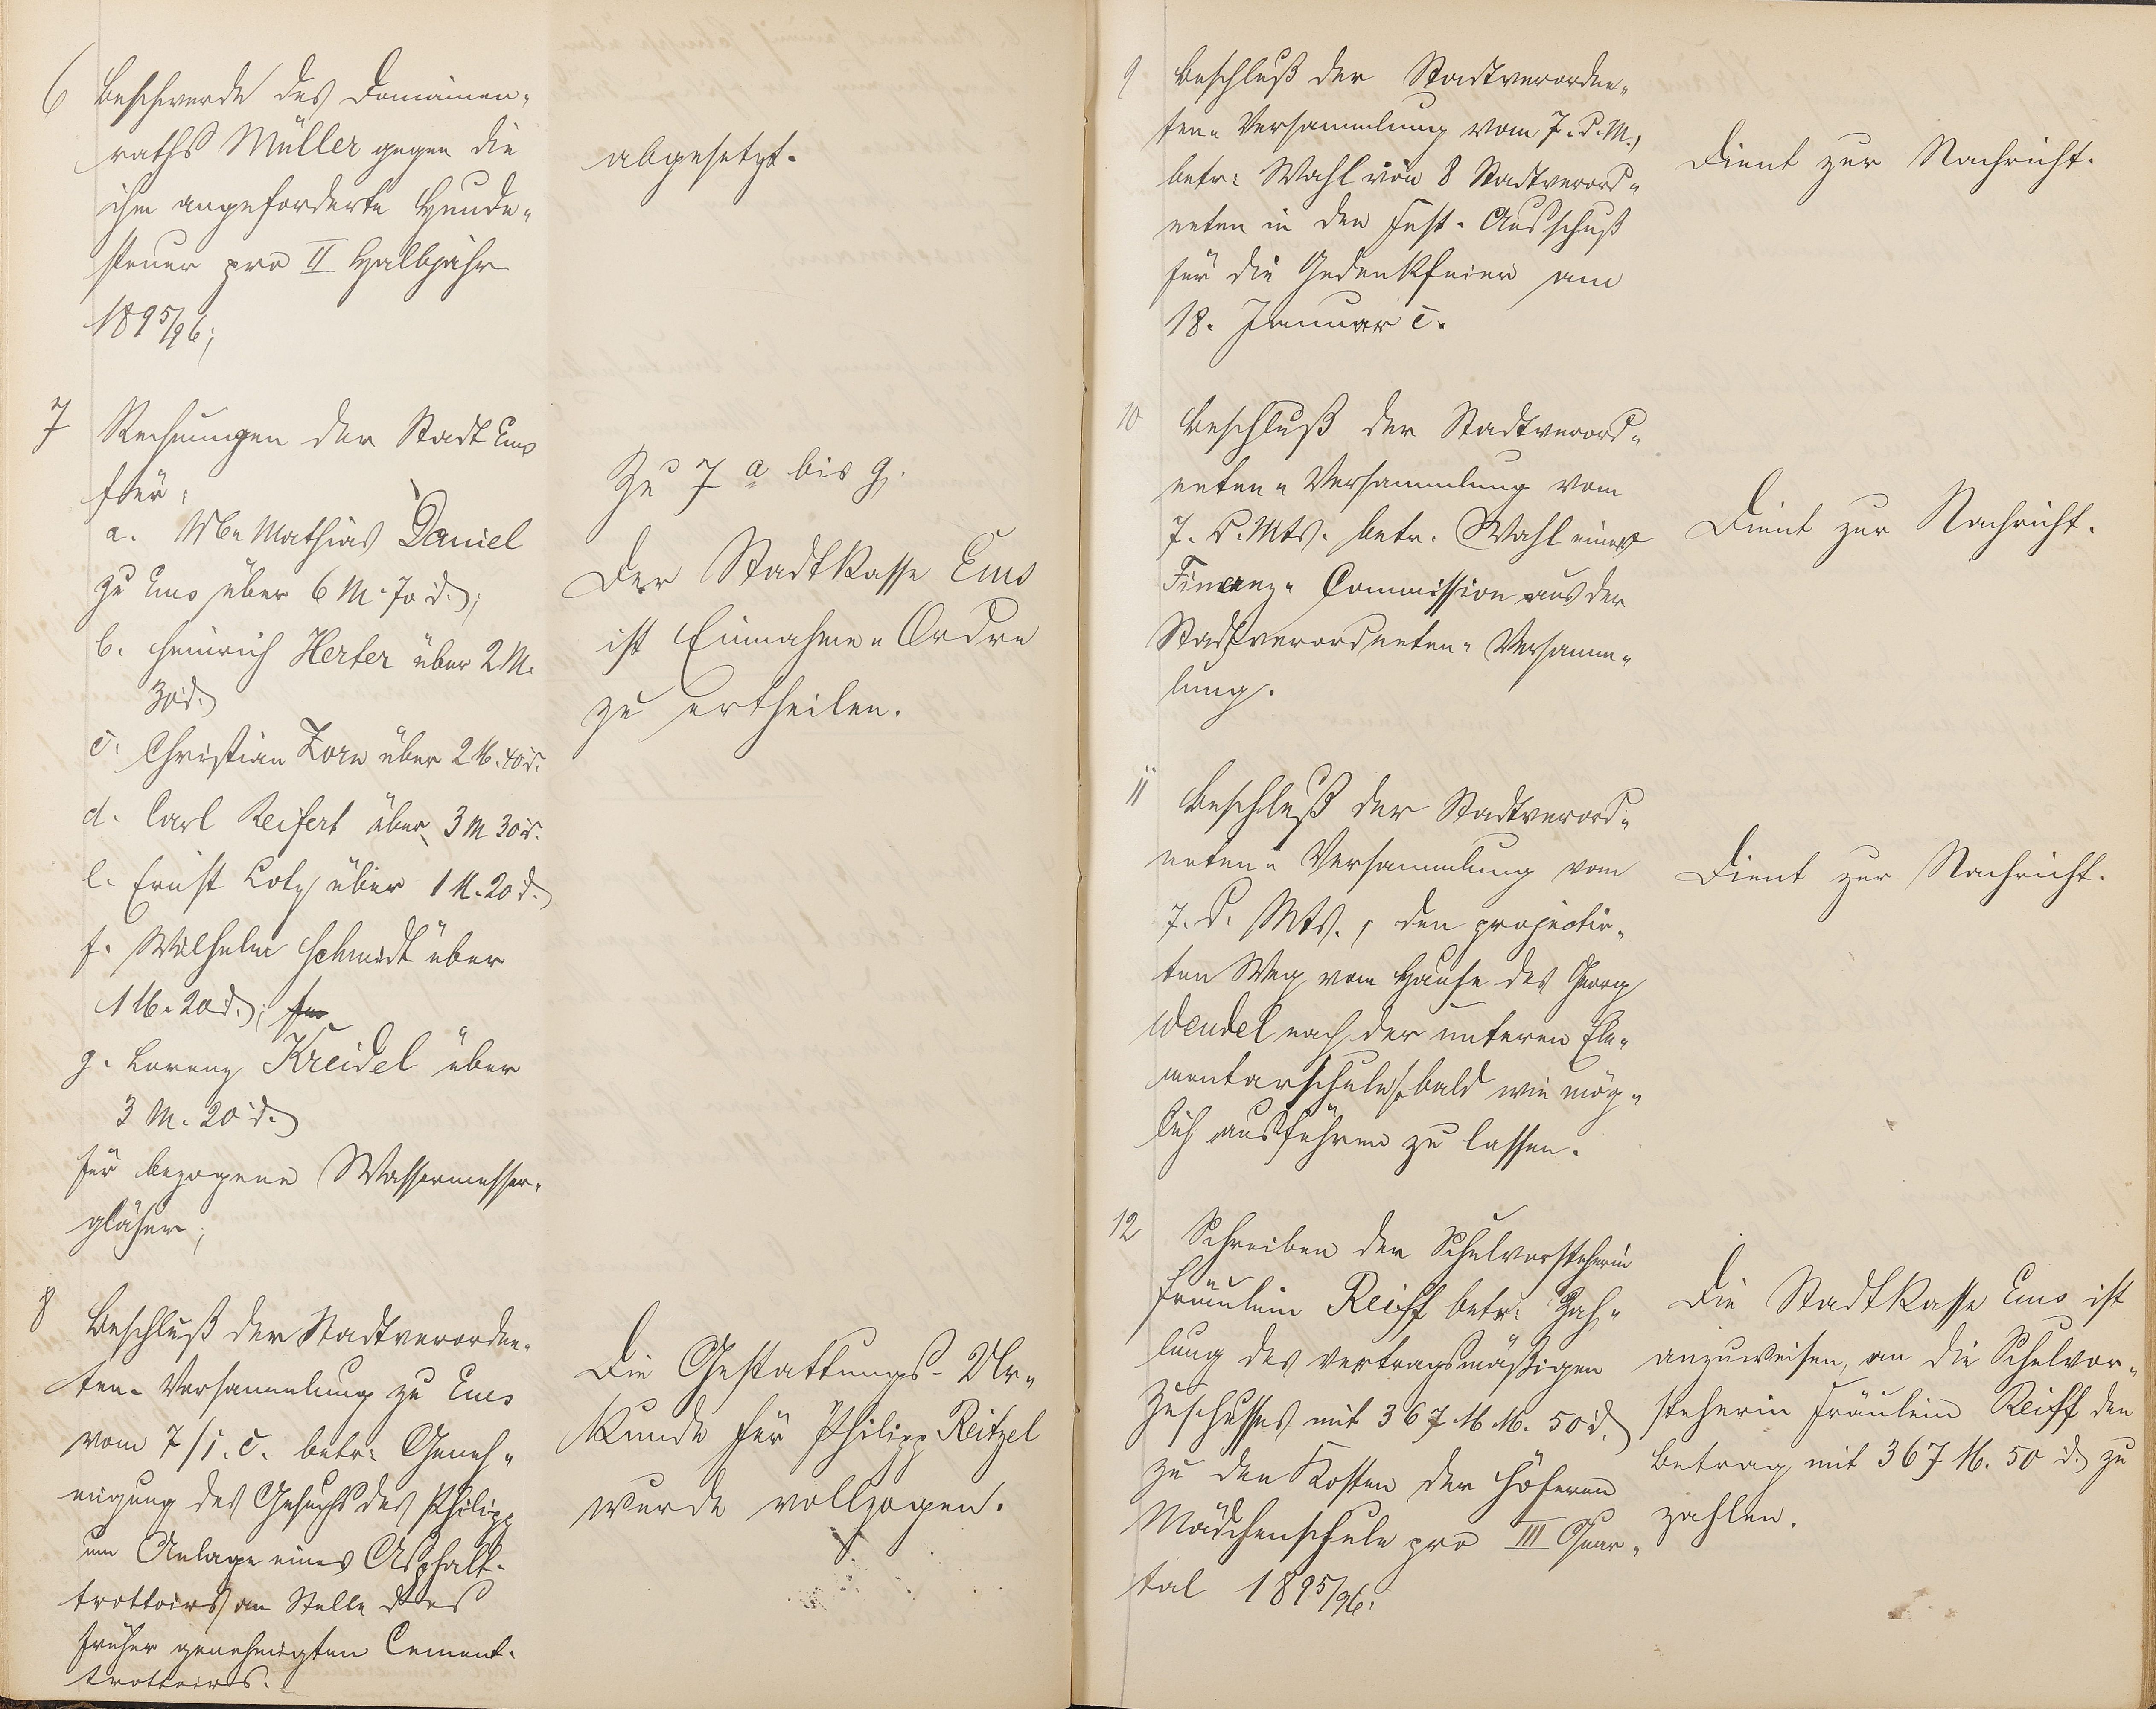 6 Beschwerde des Domainen-
raths Müller gegen die
ihm angeforderte Hunde-
steuer pro II Halbjahr
1895/96;
abgesetzt.
7 Rechnungen der Stadt Ems
für:
a. Mathias Daniel
zu Ems über 6 M. 70 d.;
b. Heinrich Herter über 2 M.
30 d.
c. Christian Zorn über 2 M. 40 d.
d. Carl Reifert über 3 M 30 d.
e. Ernst Lotz über 1 M. 20 d.
f. Wilhelm Schmidt über
1 M. 20 d.;
g. Lorenz Kreidel über
3 M. 20 d.
für bezogene Wassermesser-
gläser;
Zu 7 a bis g.
Der Stadtkasse Ems
ist Einnahme-Ordre
zu ertheilen.
8 Beschluß der Stadtverordne-
ten-Versammlung zu Ems
vom 7/1. c. betr. Geneh-
migung des Gesuchs des Philipp
um Anlage eines Asphalt-
trottoirs an Stelle des
früher genehmigten Cement-
trottoirs.
Die Gestattungs-Ur-
kunde für Philipp Reitzel
wurde vollzogen.
9 Beschluß der Stadtverordne-
ten-Versammlung vom 7. d. M.,
betr. Wahl von 8 Stadtverord-
neten in den Fest-Ausschuß
für die Gedenkfeier am
18. Januar c.
Dient zur Nachricht.
10 Beschluß der Stadtverord-
neten-Versammlung vom
7. d. Mts. betr. Wahl einer
Finanz-Commission aus der
Stadtverordneten-Versamm-
lung.
Dient zur Nachricht.
11 Beschluß der Stadtverord-
neten-Versammlung vom
7. d. Mts., den projectir-
ten Weg vom Hause des Georg
Wendel nach der unteren Ele-
mentarschule sobald wie mög-
lich ausführen zu lassen.
Dient zur Nachricht.
12 Schreiben der Schulvorsteherin
Fräulein Reiff betr. Zah-
lung des vertragsmäßigen
Zuschusses mit 367 M. 50 d.
zu den Kosten der höheren
Mädchenschule pro III Quar-
tal 1895/96.
Die Stadtkasse Ems ist
anzuweisen, an die Schulvor-
steherin Fräulein Reiff den
Betrag mit 367 M. 50 d. zu
zahlen.